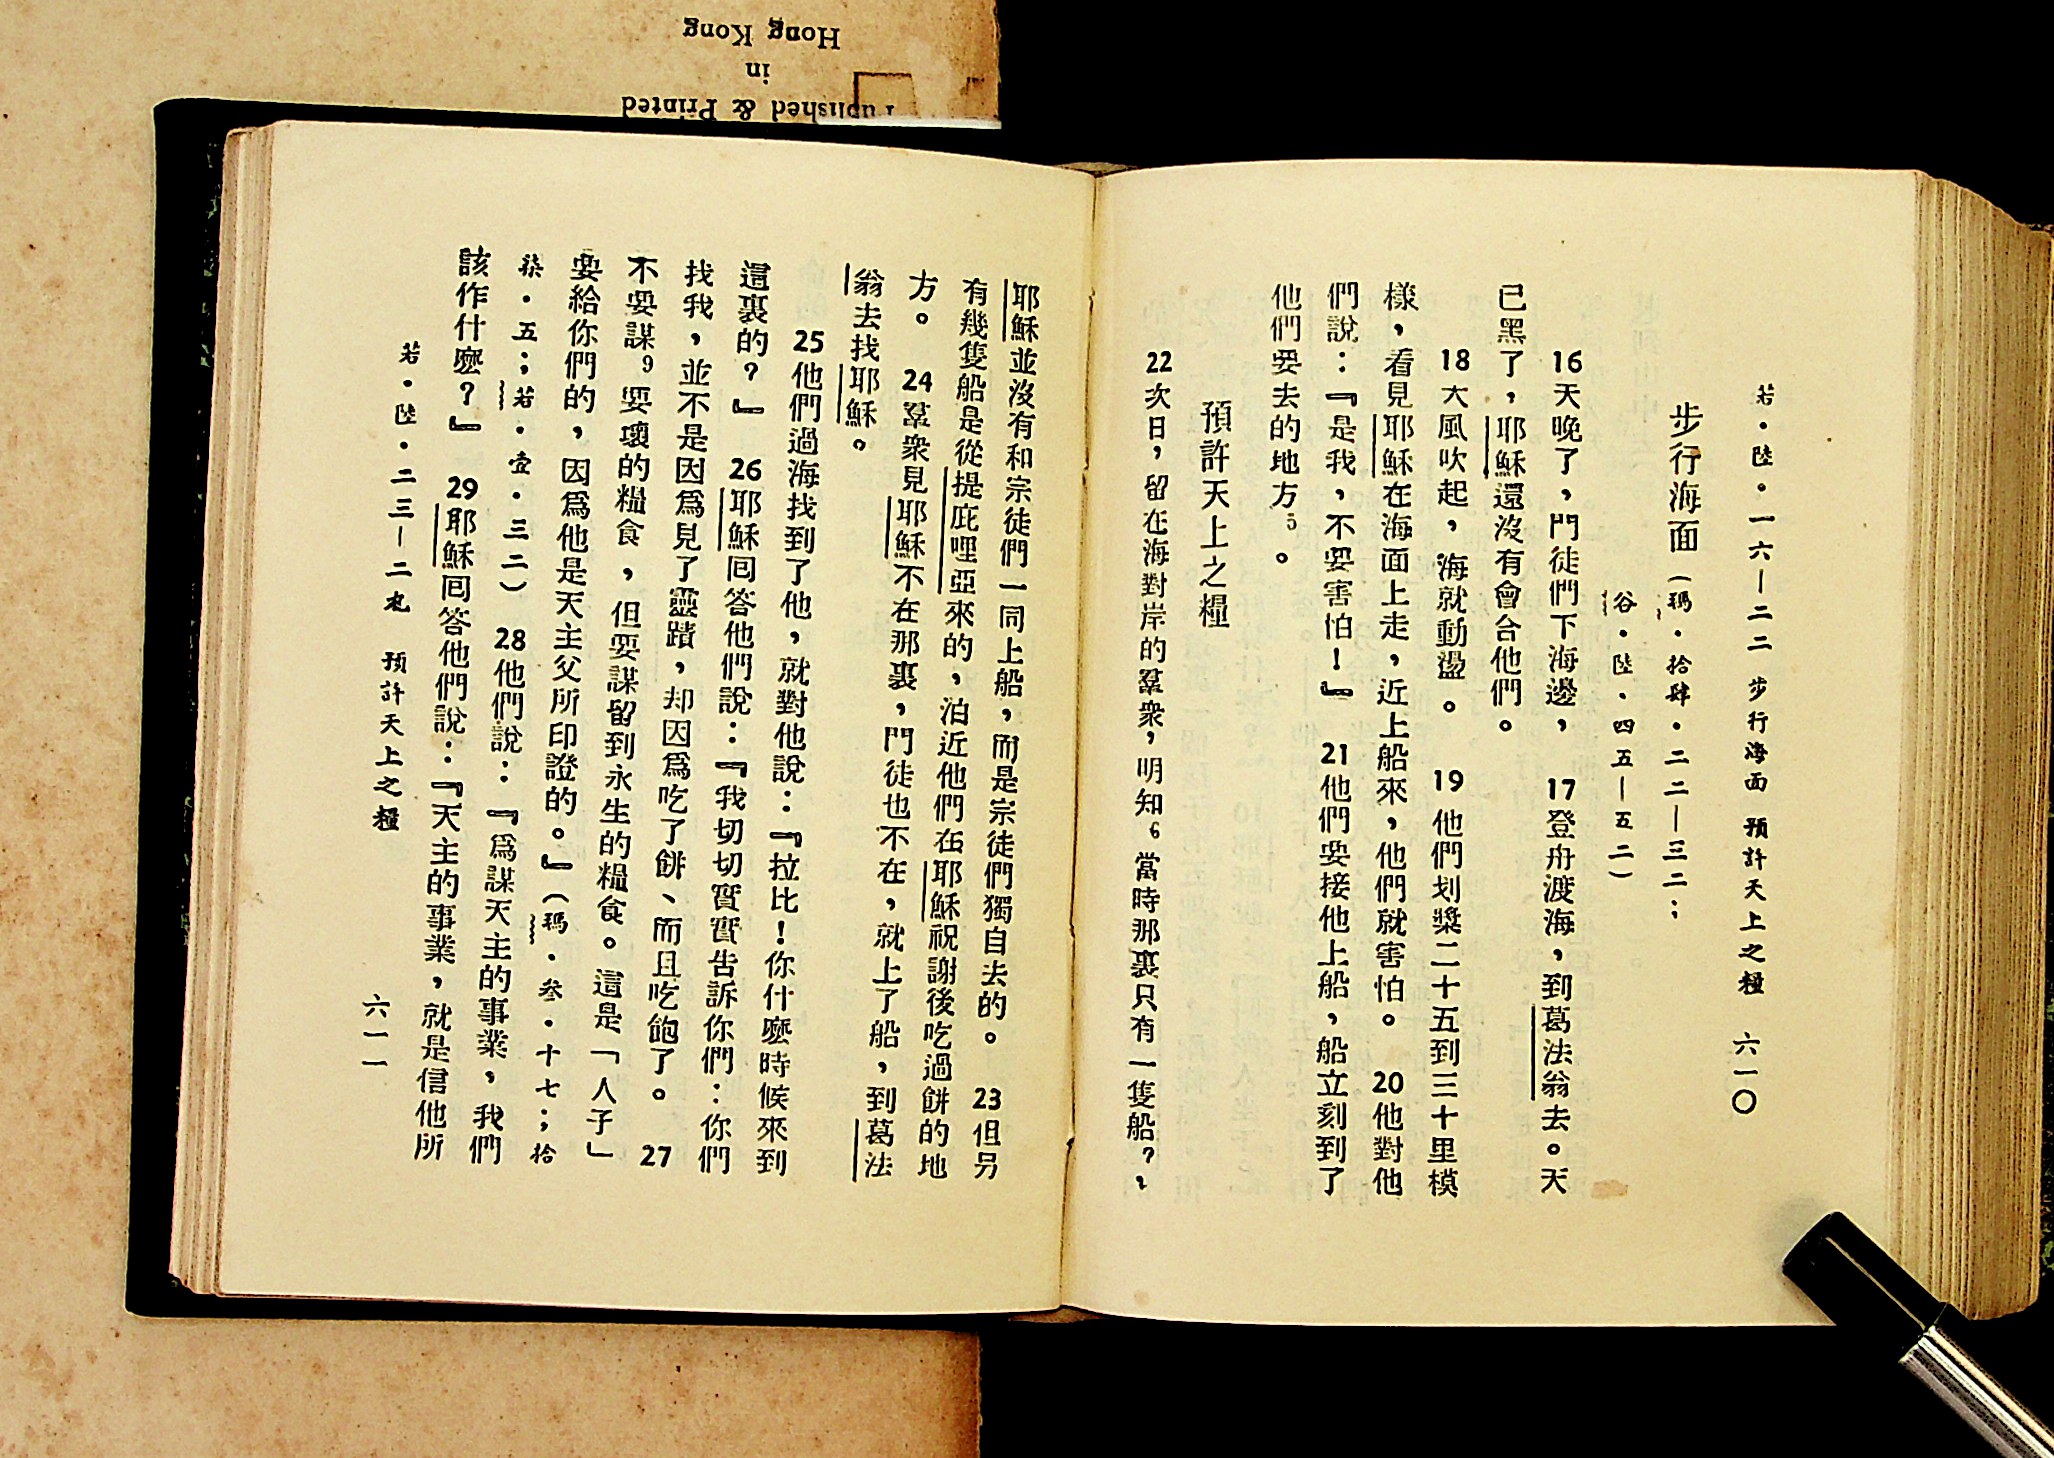 若・陸・一六—二二 步行海面 預許天上之糧 六一〇
步行海面(瑪・拾肆・二二—三二；
谷・陸・四五—五二)
16天晚了，門徒們下海邊， 17登舟渡海，到葛法翁去。天
已黑了，耶穌還沒有會合他們。
18大風吹起，海就動盪。 19他們划槳二十五到三十里模
樣，看見耶穌在海面上走，近上船來，他們就害怕。 20他對他
們說：『是我，不要害怕！』 21他們要接他上船，船立刻到了
他們要去的地方5。
預許天上之糧
22次日，留在海對岸的羣衆，明知6當時那裏只有一隻船？
耶穌並沒有和宗徒們一同上船，而是宗徒們獨自去的。 23但另
有幾隻船是從提庇哩亞來的，泊近他們在耶穌祝謝後吃過餅的地
方。 24羣衆見耶穌不在那裏，門徒也不在，就上了船，到葛法
翁去找耶穌。
25他們過海找到了他，就對他說：『拉比！你什麼時候來到
這裏的？』 26耶穌囘答他們說：『我切切實實告訴你們：你們
找我，並不是因爲見了靈蹟，却因爲吃了餅、而且吃飽了。 27
不要謀9要壞的糧食，但要謀留到永生的糧食。這是「人子」
要給你們的，因爲他是天主父所印證的。』(瑪・叁・十七；拾
柒・五；若・壹・三二) 28他們說：『爲謀天主的事業，我們
該作什麼？』 29耶穌囘答他們說：『天主的事業，就是信他所
若・陸・二三—二九 預許天上之糧 六一一
Published & Printed
in
Hong Kong